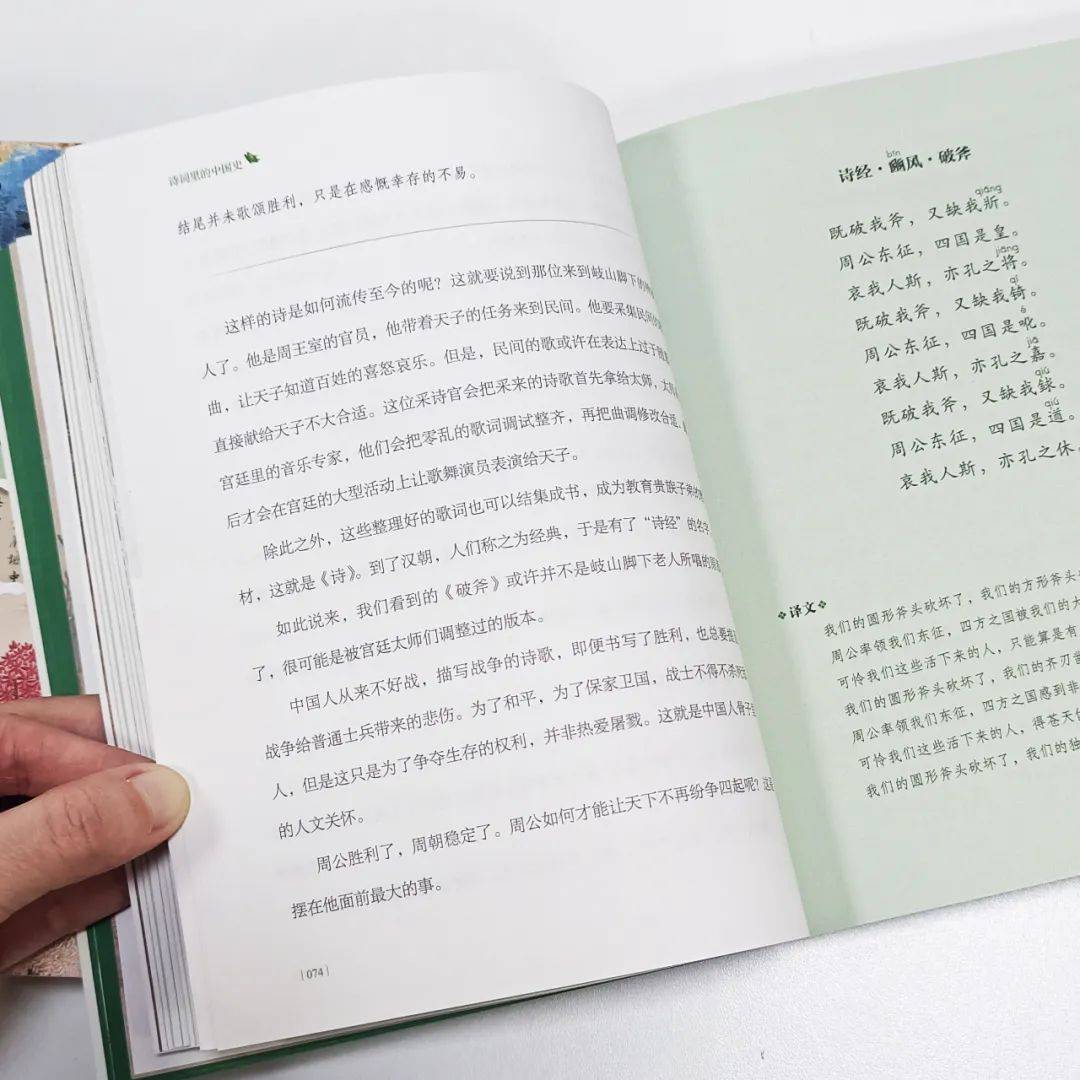 诗词里的中国史
结尾并未歌颂胜利，只是在感慨幸存的不易。
这样的诗是如何流传至今的呢？这就要说到那位来到岐山脚下的
人了。他是周王室的官员，他带着天子的任务来到民间。他要采集民间
曲，让天子知道百姓的喜怒哀乐。但是，民间的歌或许在表达上过于
直接献给天子不大合适。这位采诗官会把采来的诗歌首先拿给太师，太
宫廷里的音乐专家，他们会把零乱的歌词调试整齐，再把曲调修改合适，
后才会在宫廷的大型活动上让歌舞演员表演给天子。
除此之外，这些整理好的歌词也可以结集成书，成为教育贵族子弟的
材，这就是《诗》。到了汉朝，人们称之为经典，于是有了“诗经”的名字
如此说来，我们看到的《破斧》或许并不是岐山脚下老人所唱的
了，很可能是被宫廷太师们调整过的版本。
中国人从来不好战，描写战争的诗歌，即便书写了胜利，也总要
战争给普通士兵带来的悲伤。为了和平，为了保家卫国，战士不得不杀死
人，但是这只是为了争夺生存的权利，并非热爱屠戮。这就是中国人骨子
的人文关怀。
周公胜利了，周朝稳定了。周公如何才能让天下不再纷争四起呢？这
摆在他面前最大的事。
074
bīn
诗经·豳风·破斧
qiāng
既破我斧，又缺我斨。
周公东征，四国是皇。
jiāng
哀我人斯，亦孔之将。
qí
既破我斧，又缺我锜。
é
周公东征，四国是吪。
jiā
哀我人斯，亦孔之嘉。
qiú
既破我斧，又缺我銶。
qiú
周公东征，四国是遒。
哀我人斯，亦孔之休。
译文
我们的圆形斧头砍坏了，我们的方形斧头
周公率领我们东征，四方之国被我们的大
可怜我们这些活下来的人，只能算是有
我们的圆形斧头砍坏了，我们的齐刃
周公率领我们东征，四方之国感到非
可怜我们这些活下来的人，得苍天的
我们的圆形斧头砍坏了，我们的独